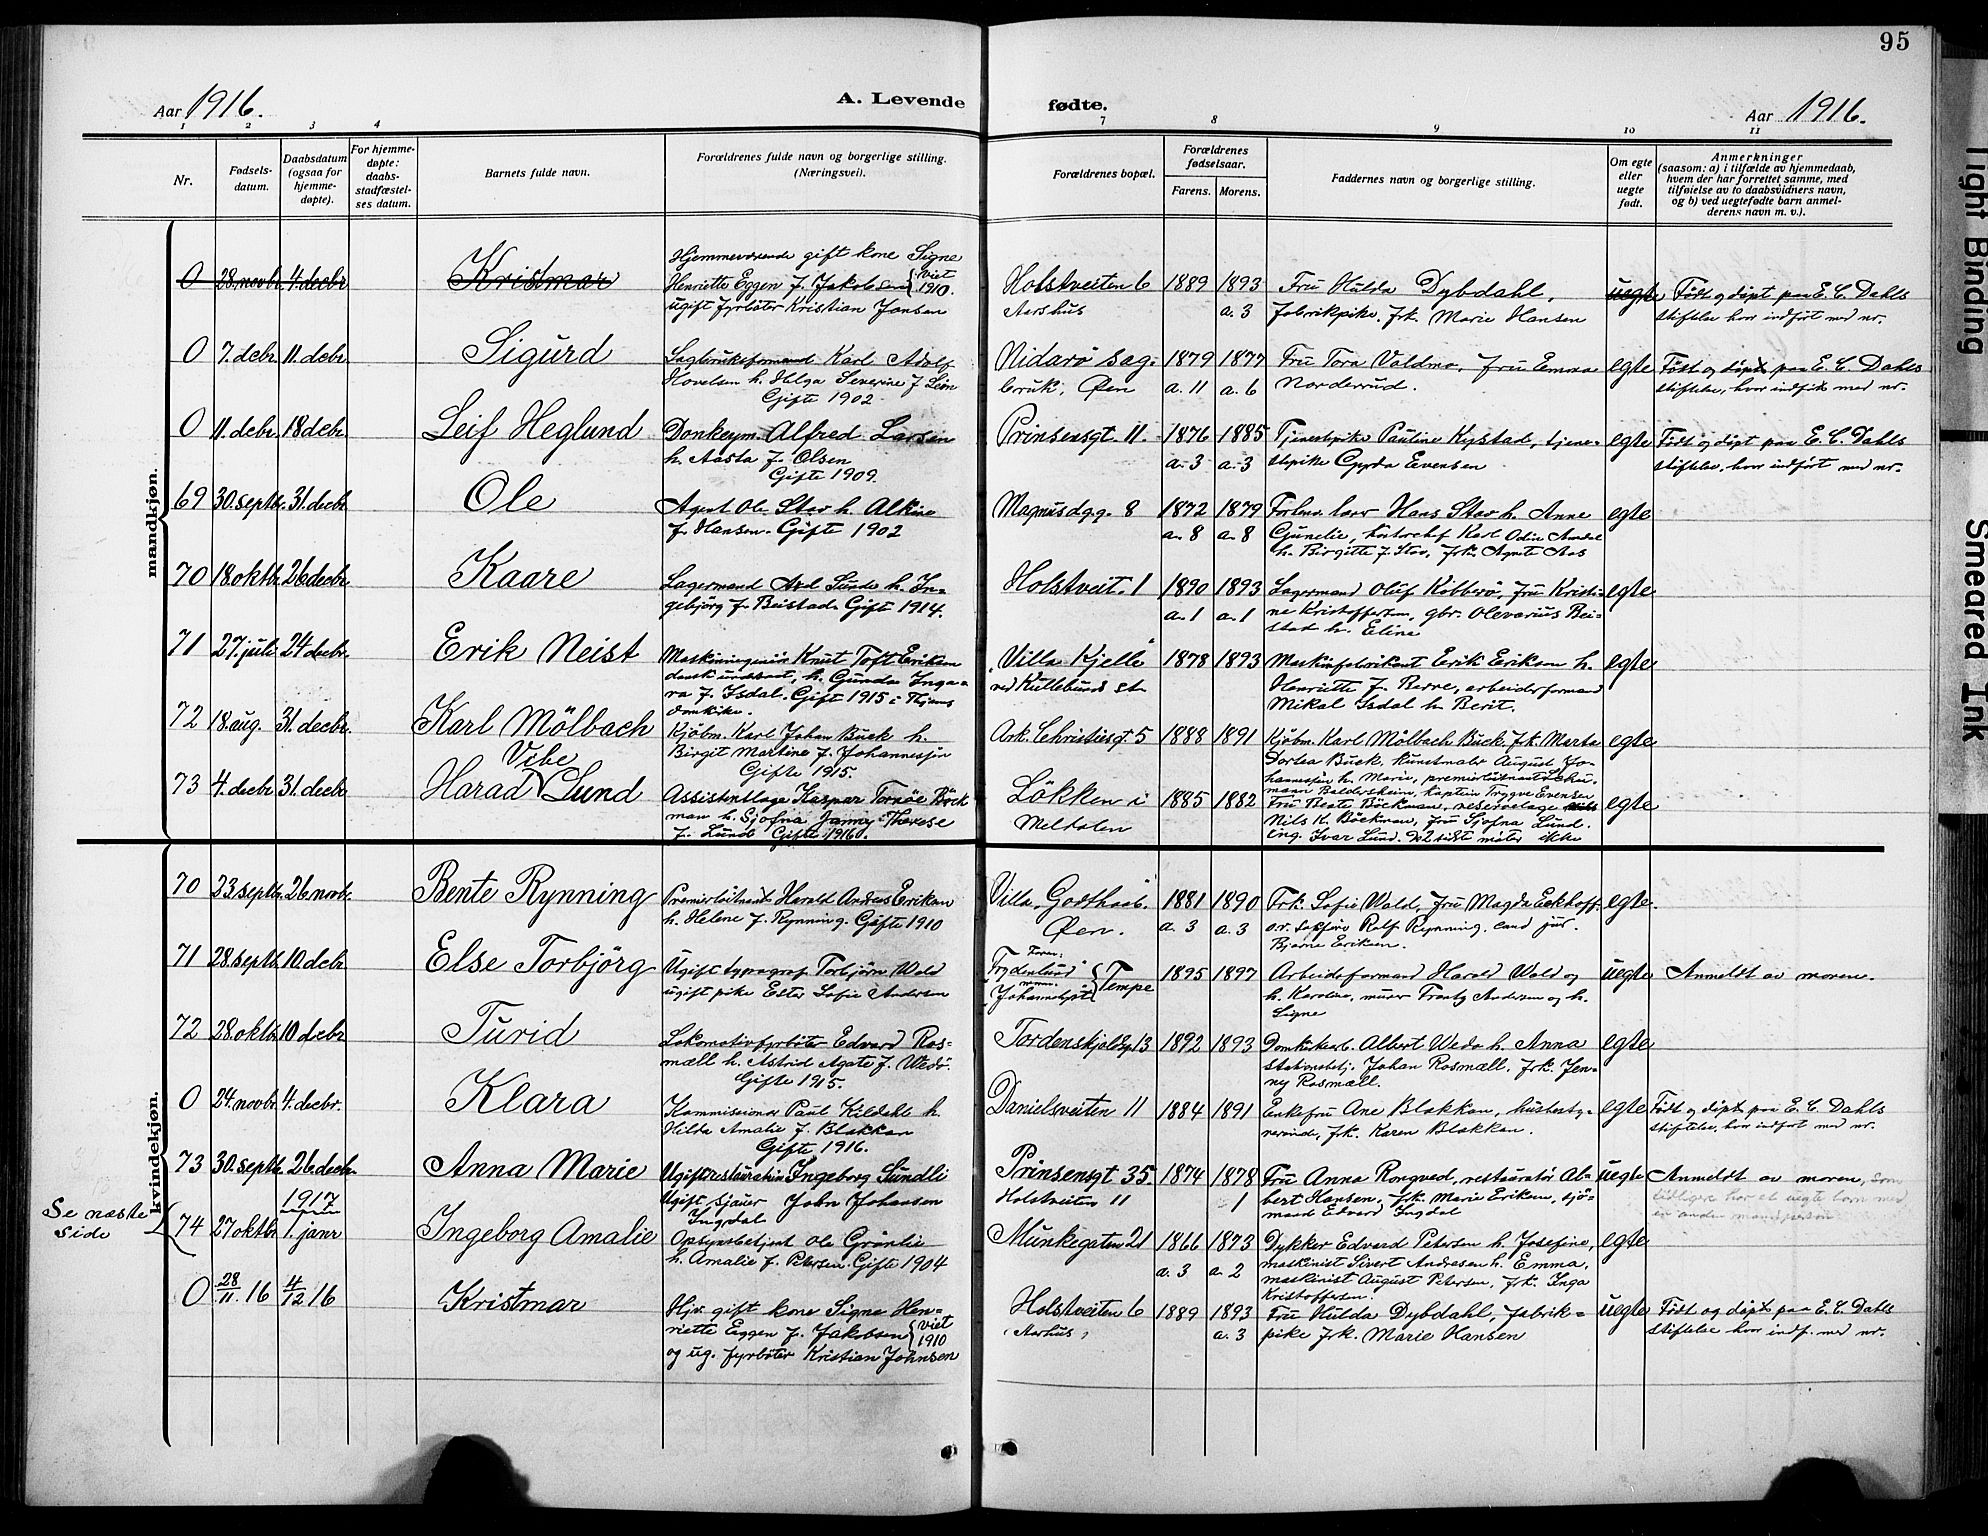 95
Aar 1916.
A. Levende
fødte.
Aar 1916.
1 2 3 4 7 8 9 10 11
Nr.
Fødsels-
datum.
Daabsdatum
(ogsaa for
hjemme-
døpte).
For hjemme-
døpte:
daabs-
stadfæstel-
ses datum.
Barnets fulde navn.
Forældrenes fulde navn og borgerlige stilling.
(Næringsvei).
Forældrenes bopæl.
Forældrenes
fødselsaar.
Farens. Morens.
Faddernes navn og borgerlige stilling.
Om egte
eller
uegte
født.
Anmerkninger
(saasom: a) i tilfælde av hjemmedaab,
hvem der har forrettet samme, med
tilføielse av to daabsvidners navn,
og b) ved uegtefødte barn anmel-
derens navn m. v.).
mandkjøn.
0 28. novbr. 4. decbr. Kristmar
Hjemmeværende gift kone Signe
Henriette Eggen f. Jakobsen (viet 1910.
ugift fyrbøter Kristian Jansen
Holstveiten 6
Aarshus
1889 1893
a. 3
Fru Hulda Dybdahl,
Fabrikpike, frk. Marie Hansen
uegte
Født og døpt paa E. C. Dahls
stiftelse hvor indført med nr.
0 7. debr. 11. debr. Sigurd
Sagbruksformand Karl Adolf
Hovelsen h. Helga Severine f. Lein
Gifte 1902
Nidarø sag-
bruk, Øen
1879 1877
a. 11 a. 6
Fru Tora Valdmo, fru Emma
Norderrud.
egte
Født og døpt paa E. C. Dahls
stiftelse, hvor indført med nr.
0 11. debr. 18 debr. Leif Heglund
Donkeym. Alfred Larsen
h. Aasta f. Olsen
Gifte 1909.
Prinsensgt. 11.
1876 1885
a. 3 a. 3
Tjenestepike Pauline Kystad, tjene-
stepike Gyda Evensen
egte
Født og døpt paa E. C. Dahls
stiftelse, hvor indført med nr.
69 30. septbr. 31. decbr. Ole
Agent Ole Stav h. Alkine
f. Hansen. Gifte 1902
Magnusdg.g. 8
1872 1879
a. 8 a. 8
Hans Stav h. Anne
Gunelie, kontorchf Karl Odin
h. Birgitte f. Stav, frk. Agnete Aas
egte
70 18. oktbr. 26 decbr. Kaare
Lagermand Axel Sunde h. In-
gebjørg f. Beistad. Gift 1914.
Holstveit. 1
1890 1893
a. 1 a. 1
Lagermand Oluf Kobberø, fru Kristi-
ne Kristoffersen, gbr. Olevarius Bei-
stad h. Eline
egte
71 27. juli 24 decbr. Erik Neist
Maskiningeniør Knut Toft Eriksen
dansk undersaat, h. Gunda Inga-
ra f. Isdal. Gift 1915 i Thjems
domkirke.
"Villa Kjelle"
ved Kullebunds st.
1878 1893
Maskinfabrikant Erik Eriksen h.
Henriette f. Berre, arbeidsformand
Mikal Isdal h. Berit.
egte
72 18. aug. 31. decbr. Karl Mölbach
Kjøbm. Karl Johan Buck h.
Birgit Martine f. Johannessen
Gifte 1915.
Ark. Christiesgt. 5
1888 1891
Kjøbm. Karl Mölbach Buck, frk. Marta
Dortea Buck, kunstmaler August Jo-
hannessen h. Marie, premierløitnant Leku-
maan Balderskein, kaptein Trygve Evensen
egte
73 4. decbr. 31. decbr. Harad Vibe Lund
Assistentlæge Kaspar Tornøe Böck
man h. Sjofna Janny Therese
f. Lund Gifte 1916.
Løkken i
Meldalen
1885 1882
Fru Beate Böckman, reservelæge
Nils K. Böckman, fru Sjofna Lund
ing. Ivar Lund. Det sidste møter ikke
egte
kvindekjøn.
70 23. septbr. 26 novbr. Bente Rynning
Premierløitnant Harald Andreas Eriksen
h. Helene f. Rynning. Gifte 1910
Villa "Godthaab"
Øen.
1881 1890
a. 3 a. 3
Frk. Sofie Wold, fru Magda Eckhoff,
o.r. sakfører Rolf Rynning, cand jur.
Bjarne Eriksen.
egte
71 28. septbr. 10. debr. Else Torbjörg
Ugift typograf Torbjørn Wold
ugift pike Ester Sofie Andersen
Faren:
Frydenlund
moren:
"Johanneslyst" } Tempe
1895 1897
Arbeidsformand Harald Wold og
h. Karoline, murer Tranby Andersen og h.
Signe
uegte
Anmeldt av moren.
72 28. oktbr. 10 debr. Turid
Lokomotivfyrbøter Edvard Ros-
mæll h. Astrid Agate f. Wedø.
Gifte 1915.
Tordenskjoldsg. 13
1892 1893
Domkirkearb. Albert Wedø h. Anna
stationsbetj. Johan Rosmæll, frk. Jen-
ny Rosmæll.
egte
0 24. novbr. 4. decbr. Klara
Kommissionær Paul Kildahl h.
Hilda Amalie f. Blakkan
Gifte 1916.
Danielsveiten 11
1884 1891
Enkefru Ane Blakkan, husbesty-
rerinde, frk. Karen Blakkan.
egte
Født og døpt paa E. C. Dahls
stiftelse, hvor indført med nr.
73 30. septbr. 26 decbr. Anna Marie
Ugift restauratrice Ingeborg Sundli
Ugift sjauer John Johansen
Ingdal
Prinsensgt 35
Holstveiten 11
1874 1878
1
Fru Anna Rongved, restauratør Al-
bert Hansen, frk. Marie Eriksen, sjø-
mand Edvard Ingdal
uegte
Anmeldt av moren, som
tidligere har et uegte barn med
en anden mandsperson
Se næste
side
1917
74 27 oktbr 1. janr Ingeborg Amalie
Opsynsbetjent Ole Grønlie
h. Amalie f. Petersen. Gifte 1904
Munkegaten 21
1866 1873
a. 3 a. 2
Dykker Edvard Petersen h. Josefine,
maskinist Sivert Andresen h. Emma,
maskinist August Petersen, frk. Inga
Kristoffersen.
egte
0 28/11. 16 4/12 16 Kristmar
Hjv. gift kone Signe Hen-
riette Eggen f. Jakobsen (viet 1910
og ug. fyrbøter Kristian Johnsen
Holstveiten 6
(Aarhus)
1889 1893
a. 3
Fru Hulda Dybdahl, fabrik-
pike frk. Marie Hansen
uegte
Født og døpt paa E. C. Dahls
stiftelse hvor indf. med nr.
Tight Binding
Smeared Ink